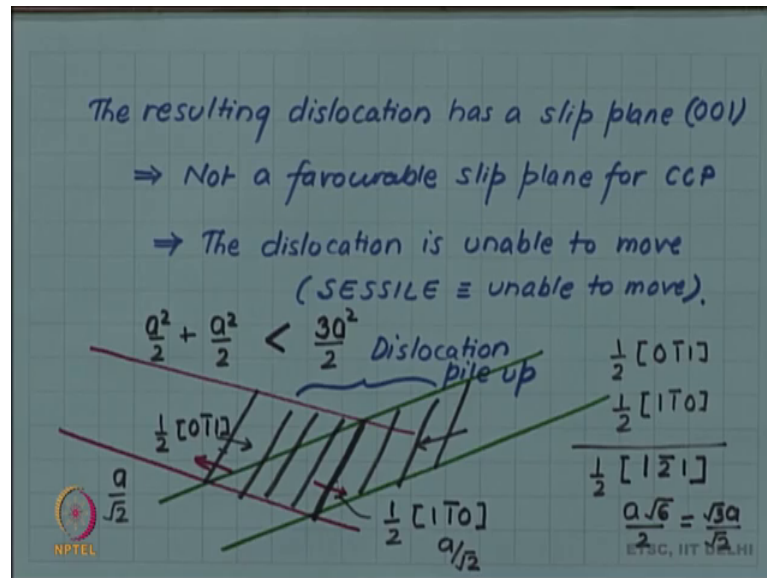 The resulting dislocation has a slip plane (001)
⇒ Not a favourable slip plane for CCP
⇒ The dislocation is unable to move
(SESSILE ≡ unable to move).
a²/2 + a²/2 < 3a²/2
Dislocation
pile up
1/2 [01̄1]
1/2 [01̄1]
1/2 [11̄0]
1/2 [12̄1]
a/√2
1/2 [11̄0]
a/√2
a√6/2 = √3a/√2
NPTEL
ETSC, IIT DELHI